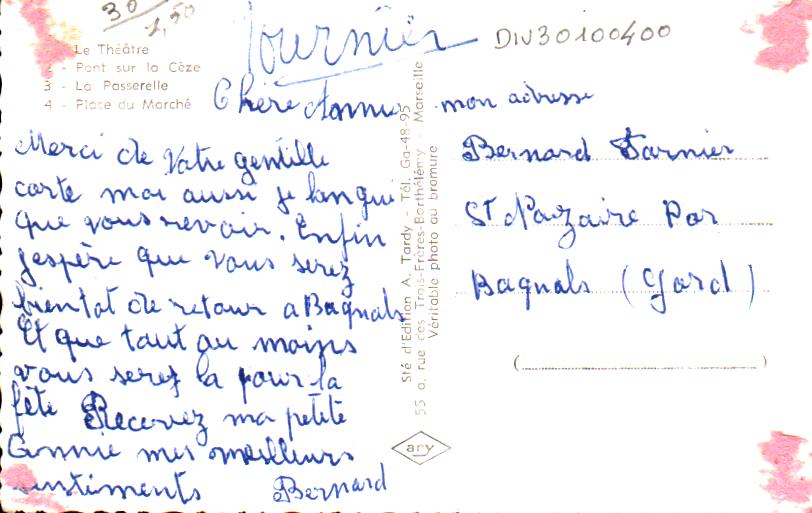 30
1,50
Fournier
DIV30100400
Le Théâtre
2 - Pont sur la Cèze
3 - La Passerelle
4 - Place du Marché
Chère Annie
Merci de Votre gentille
carte moi aussi je langui
que vous revoir. Enfin
j'espère que vous serez
bientot de retour a Bagnals
Et que tout au moins
vous serez la pour la
fête Recevez ma petite
Annie mes meilleurs
sentiments Bernard
Sté d'Edition A. Tardy - Tél. Ga-48-95
55 a, rue des Trois-Frères-Barthélémy - Marseille
Véritable photo au bromure
ary
mon adresse
Bernard Farnier
St Nazaire Par
Bagnals (Gard)